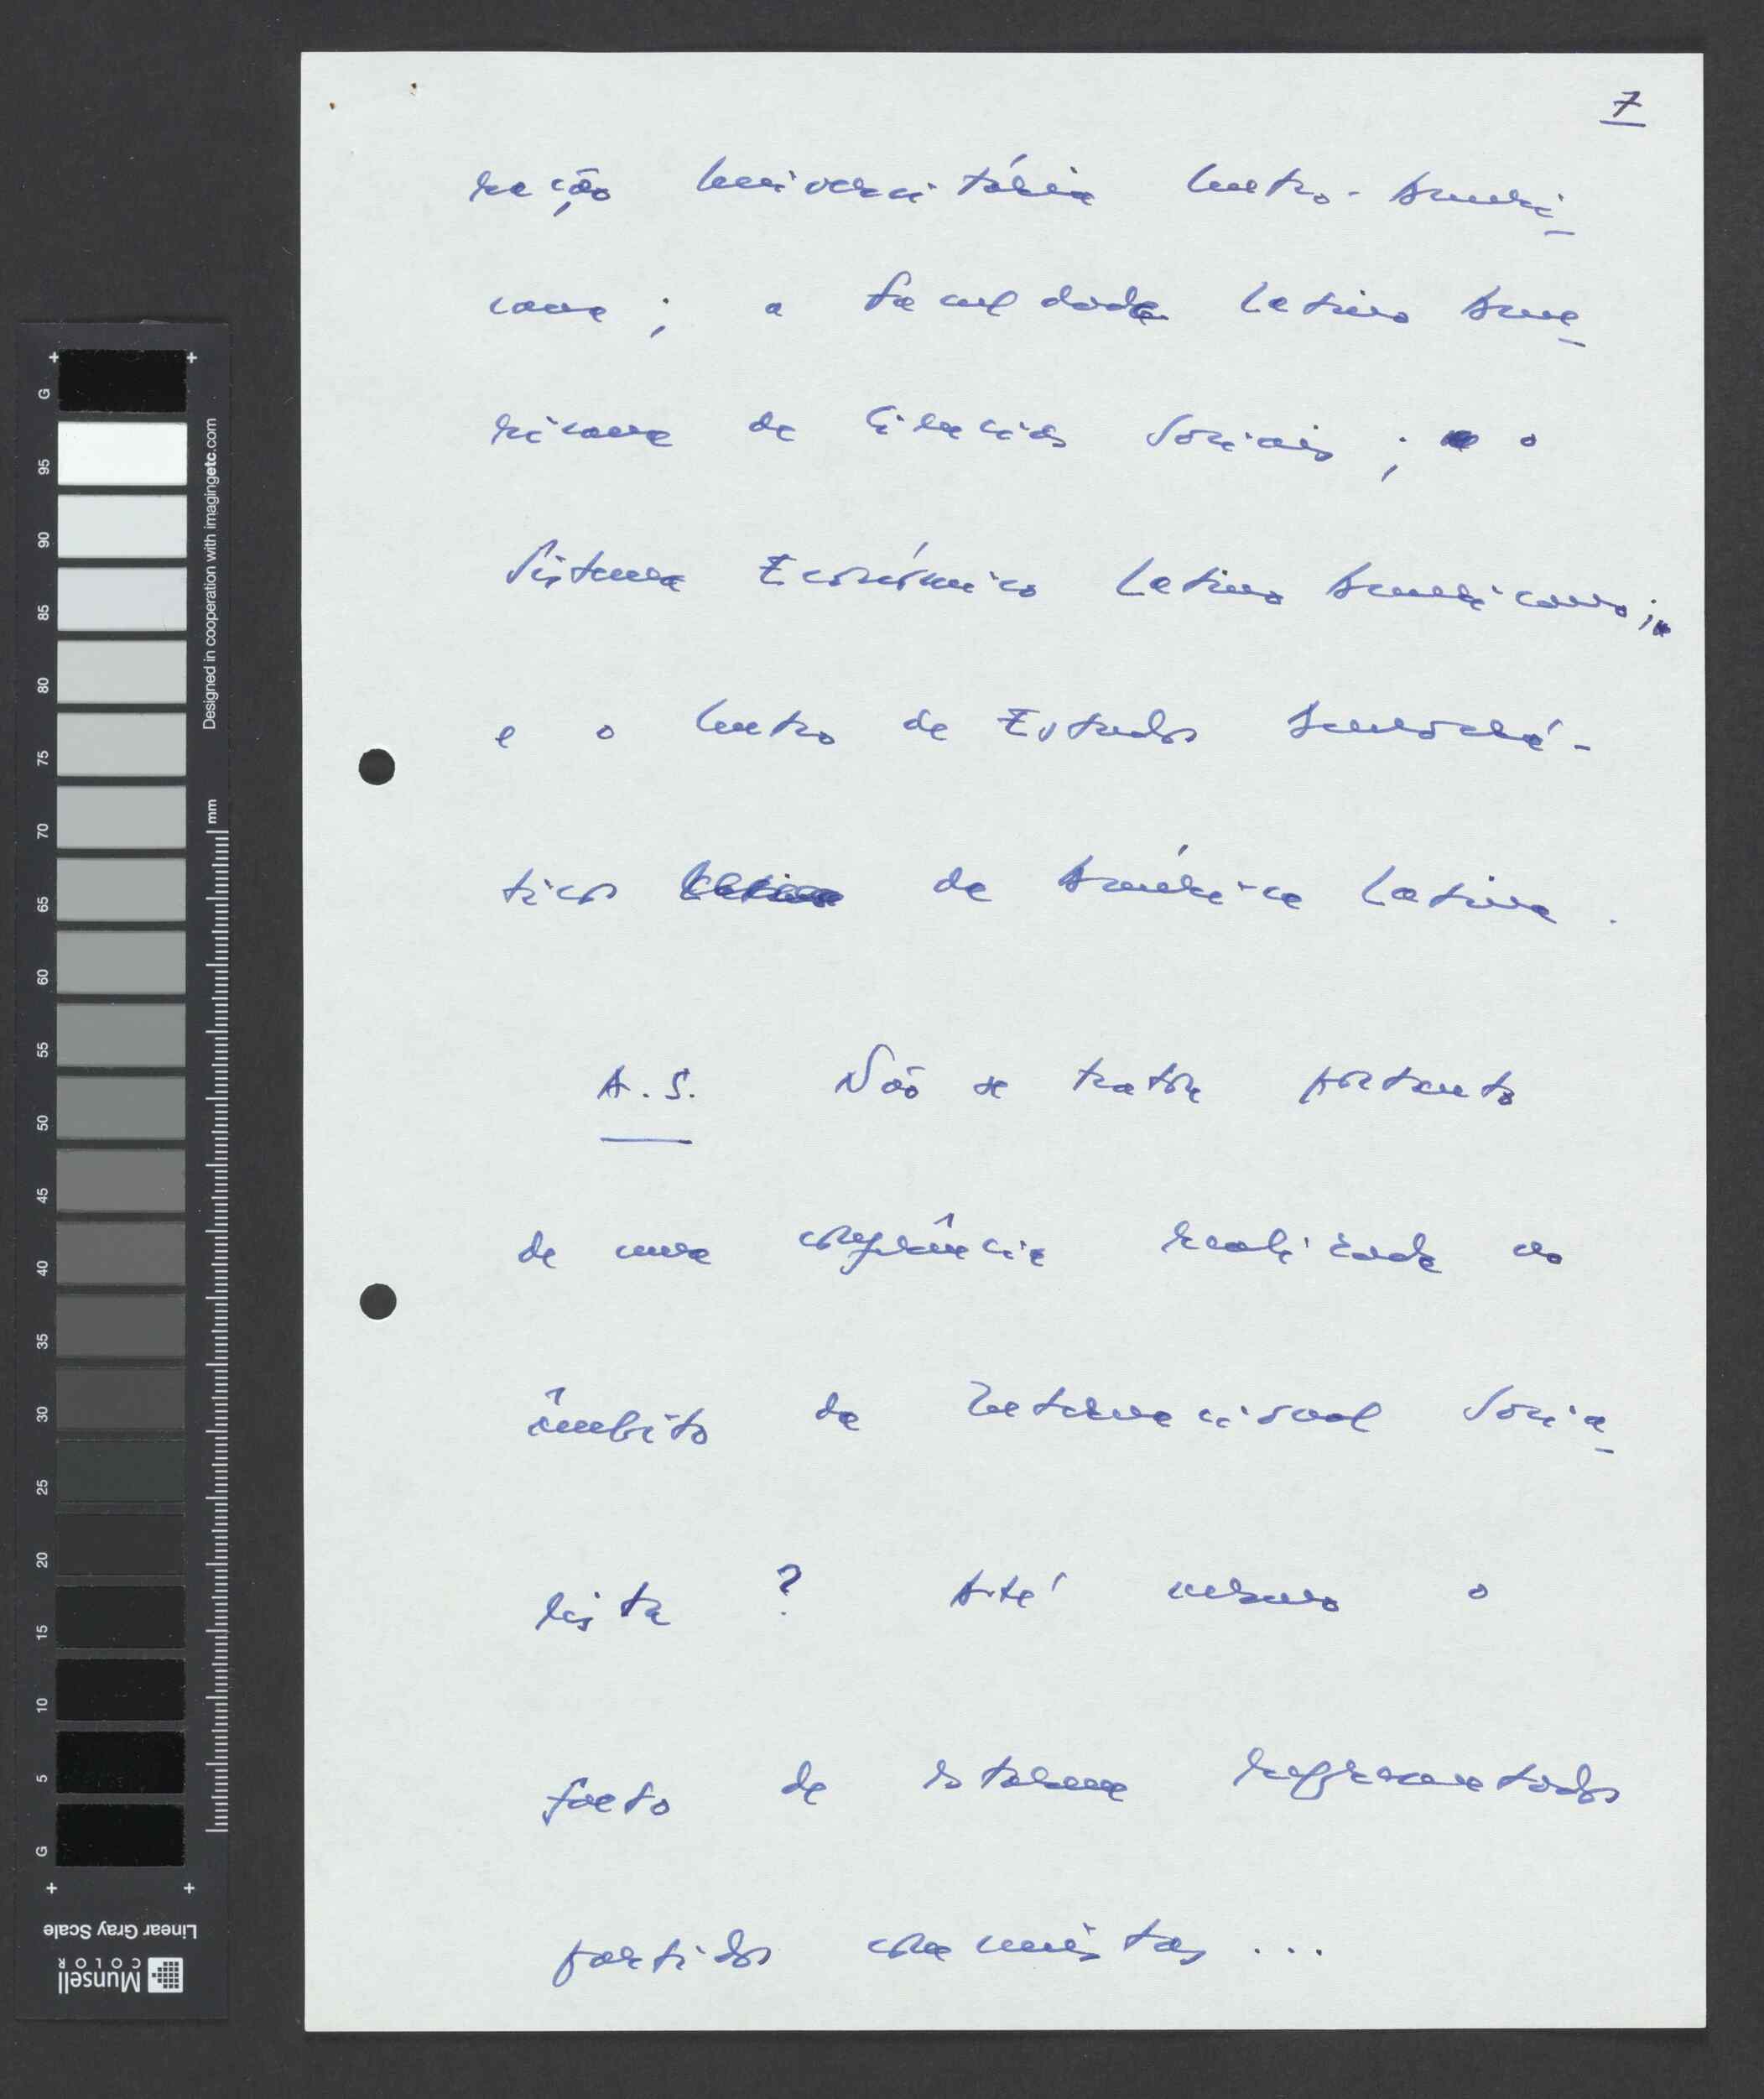 7
ração Universitária Centro-Ameri
cana ; a Faculdade Latino Ame
ricana de Ciências Sociais ; o
Sistema Económico Latino Americano ;
e o Centro de Estudos Democrá-
ticos da América Latina .
A.S. Não se trata portanto
de uma conferência realizada no
âmbito da Internacional Socia
lista ? Até mesmo o
facto de estarem representados
partidos comunistas ...
G
95
90
85
80
75
70
65
60
55
50
45
40
35
30
25
20
15
10
5
G
Designed in cooperation with imagingetc.com
mm
Linear Gray Scale
Munsell
COLOR